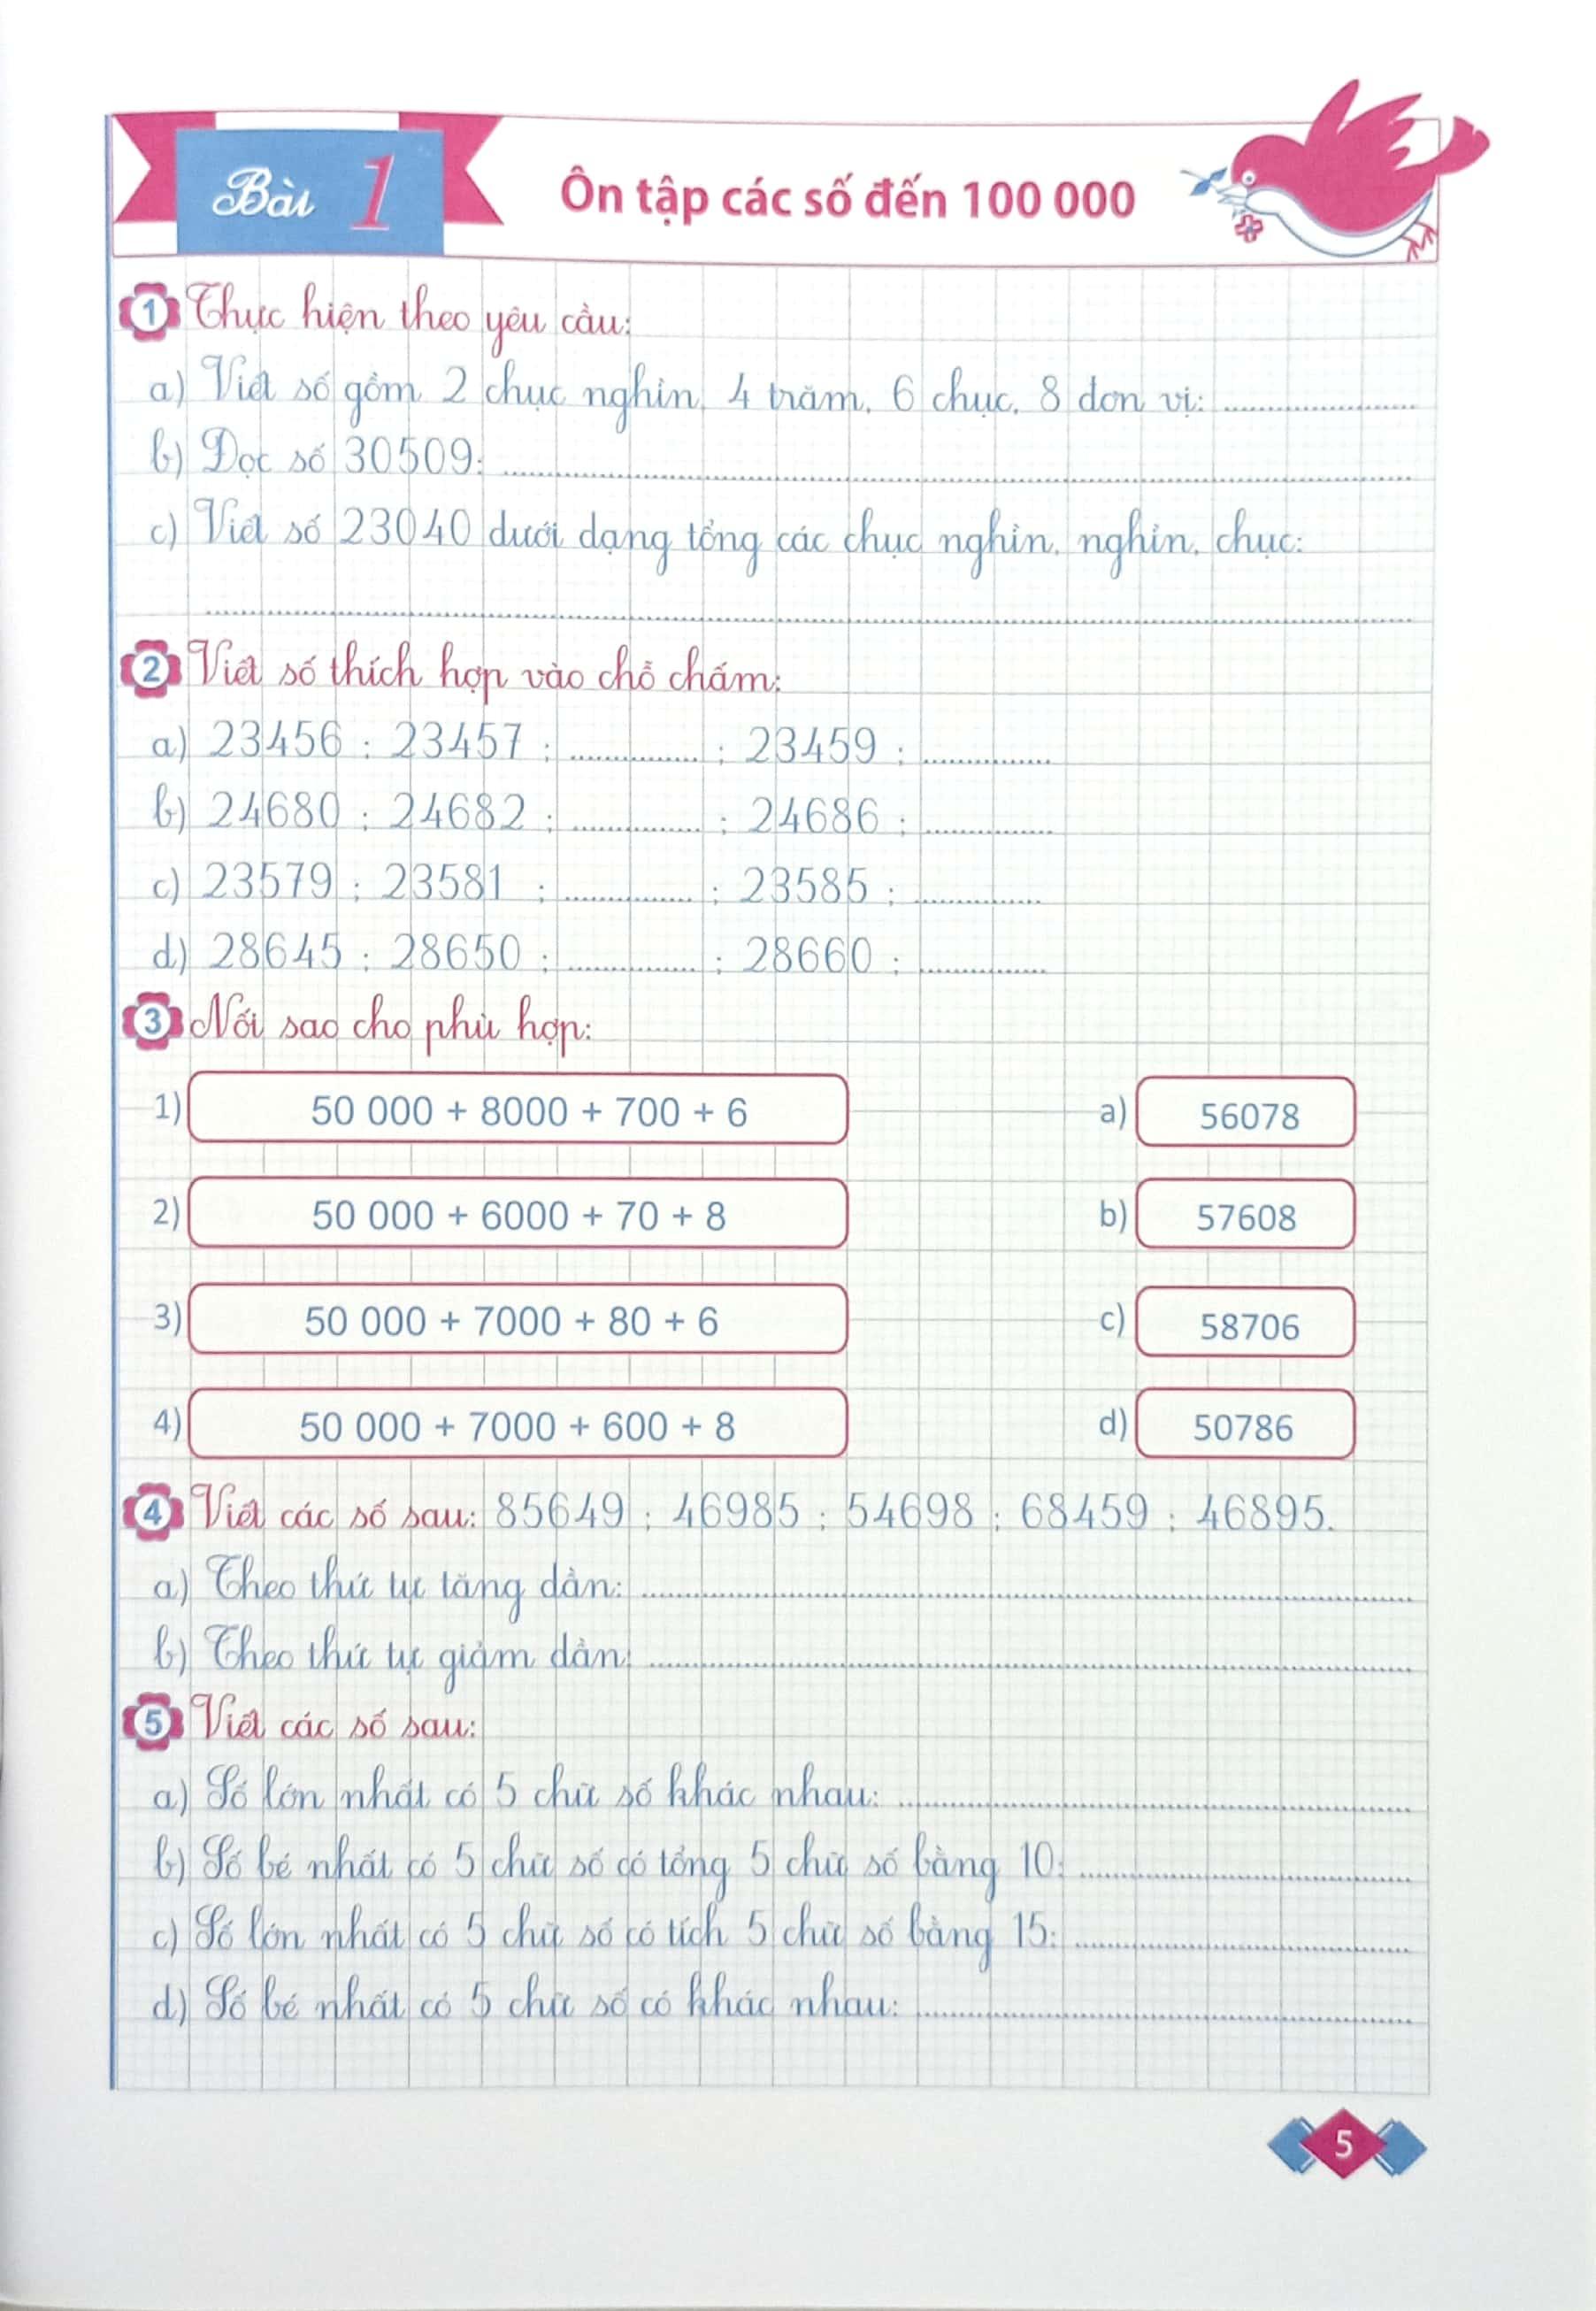 Bài 1
Ôn tập các số đến 100 000
1 Thực hiện theo yêu cầu:
a) Viết số gồm 2 chục nghìn, 4 trăm, 6 chục, 8 đơn vị: ....................
b) Đọc số 30509: ....................
c) Viết số 23040 dưới dạng tổng các chục nghìn, nghìn, chục:
....................
2 Viết số thích hợp vào chỗ chấm:
a) 23456 ; 23457 ; ............ ; 23459 ; ............
b) 24680 ; 24682 ; ............ ; 24686 ; ............
c) 23579 ; 23581 ; ............ ; 23585 ; ............
d) 28645 ; 28650 ; ............ ; 28660 ; ............
3 Nối sao cho phù hợp:
1) 50 000 + 8000 + 700 + 6 a) 56078
2) 50 000 + 6000 + 70 + 8 b) 57608
3) 50 000 + 7000 + 80 + 6 c) 58706
4) 50 000 + 7000 + 600 + 8 d) 50786
4 Viết các số sau: 85649 ; 46985 ; 54698 ; 68459 ; 46895.
a) Theo thứ tự tăng dần: ....................
b) Theo thứ tự giảm dần: ....................
5 Viết các số sau:
a) Số lớn nhất có 5 chữ số khác nhau: ....................
b) Số bé nhất có 5 chữ số có tổng 5 chữ số bằng 10: ....................
c) Số lớn nhất có 5 chữ số có tích 5 chữ số bằng 15: ....................
d) Số bé nhất có 5 chữ số có khác nhau: ....................
5